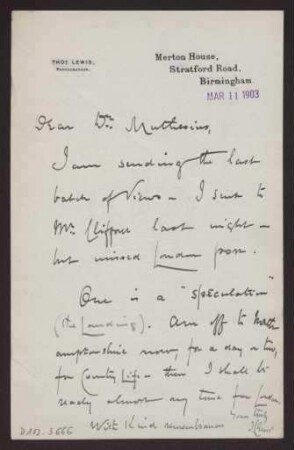 THOS LEWIS,
PHOTOGRAPHER.
Merton House,
Stratford Road,
Birmingham.
MAR 11 1903
Dear Dr. Muthesius,
I am sending the last
batch of Views - I sent to
Mr Cliffner last night -
but missed London post.
One is a "speculation"
(the Landing). Am off to North
amptonshire now, for a day or two,
for Country Life - then I shall be
ready almost any time for London
With Kind remembrances
Yours truly
D102-3666